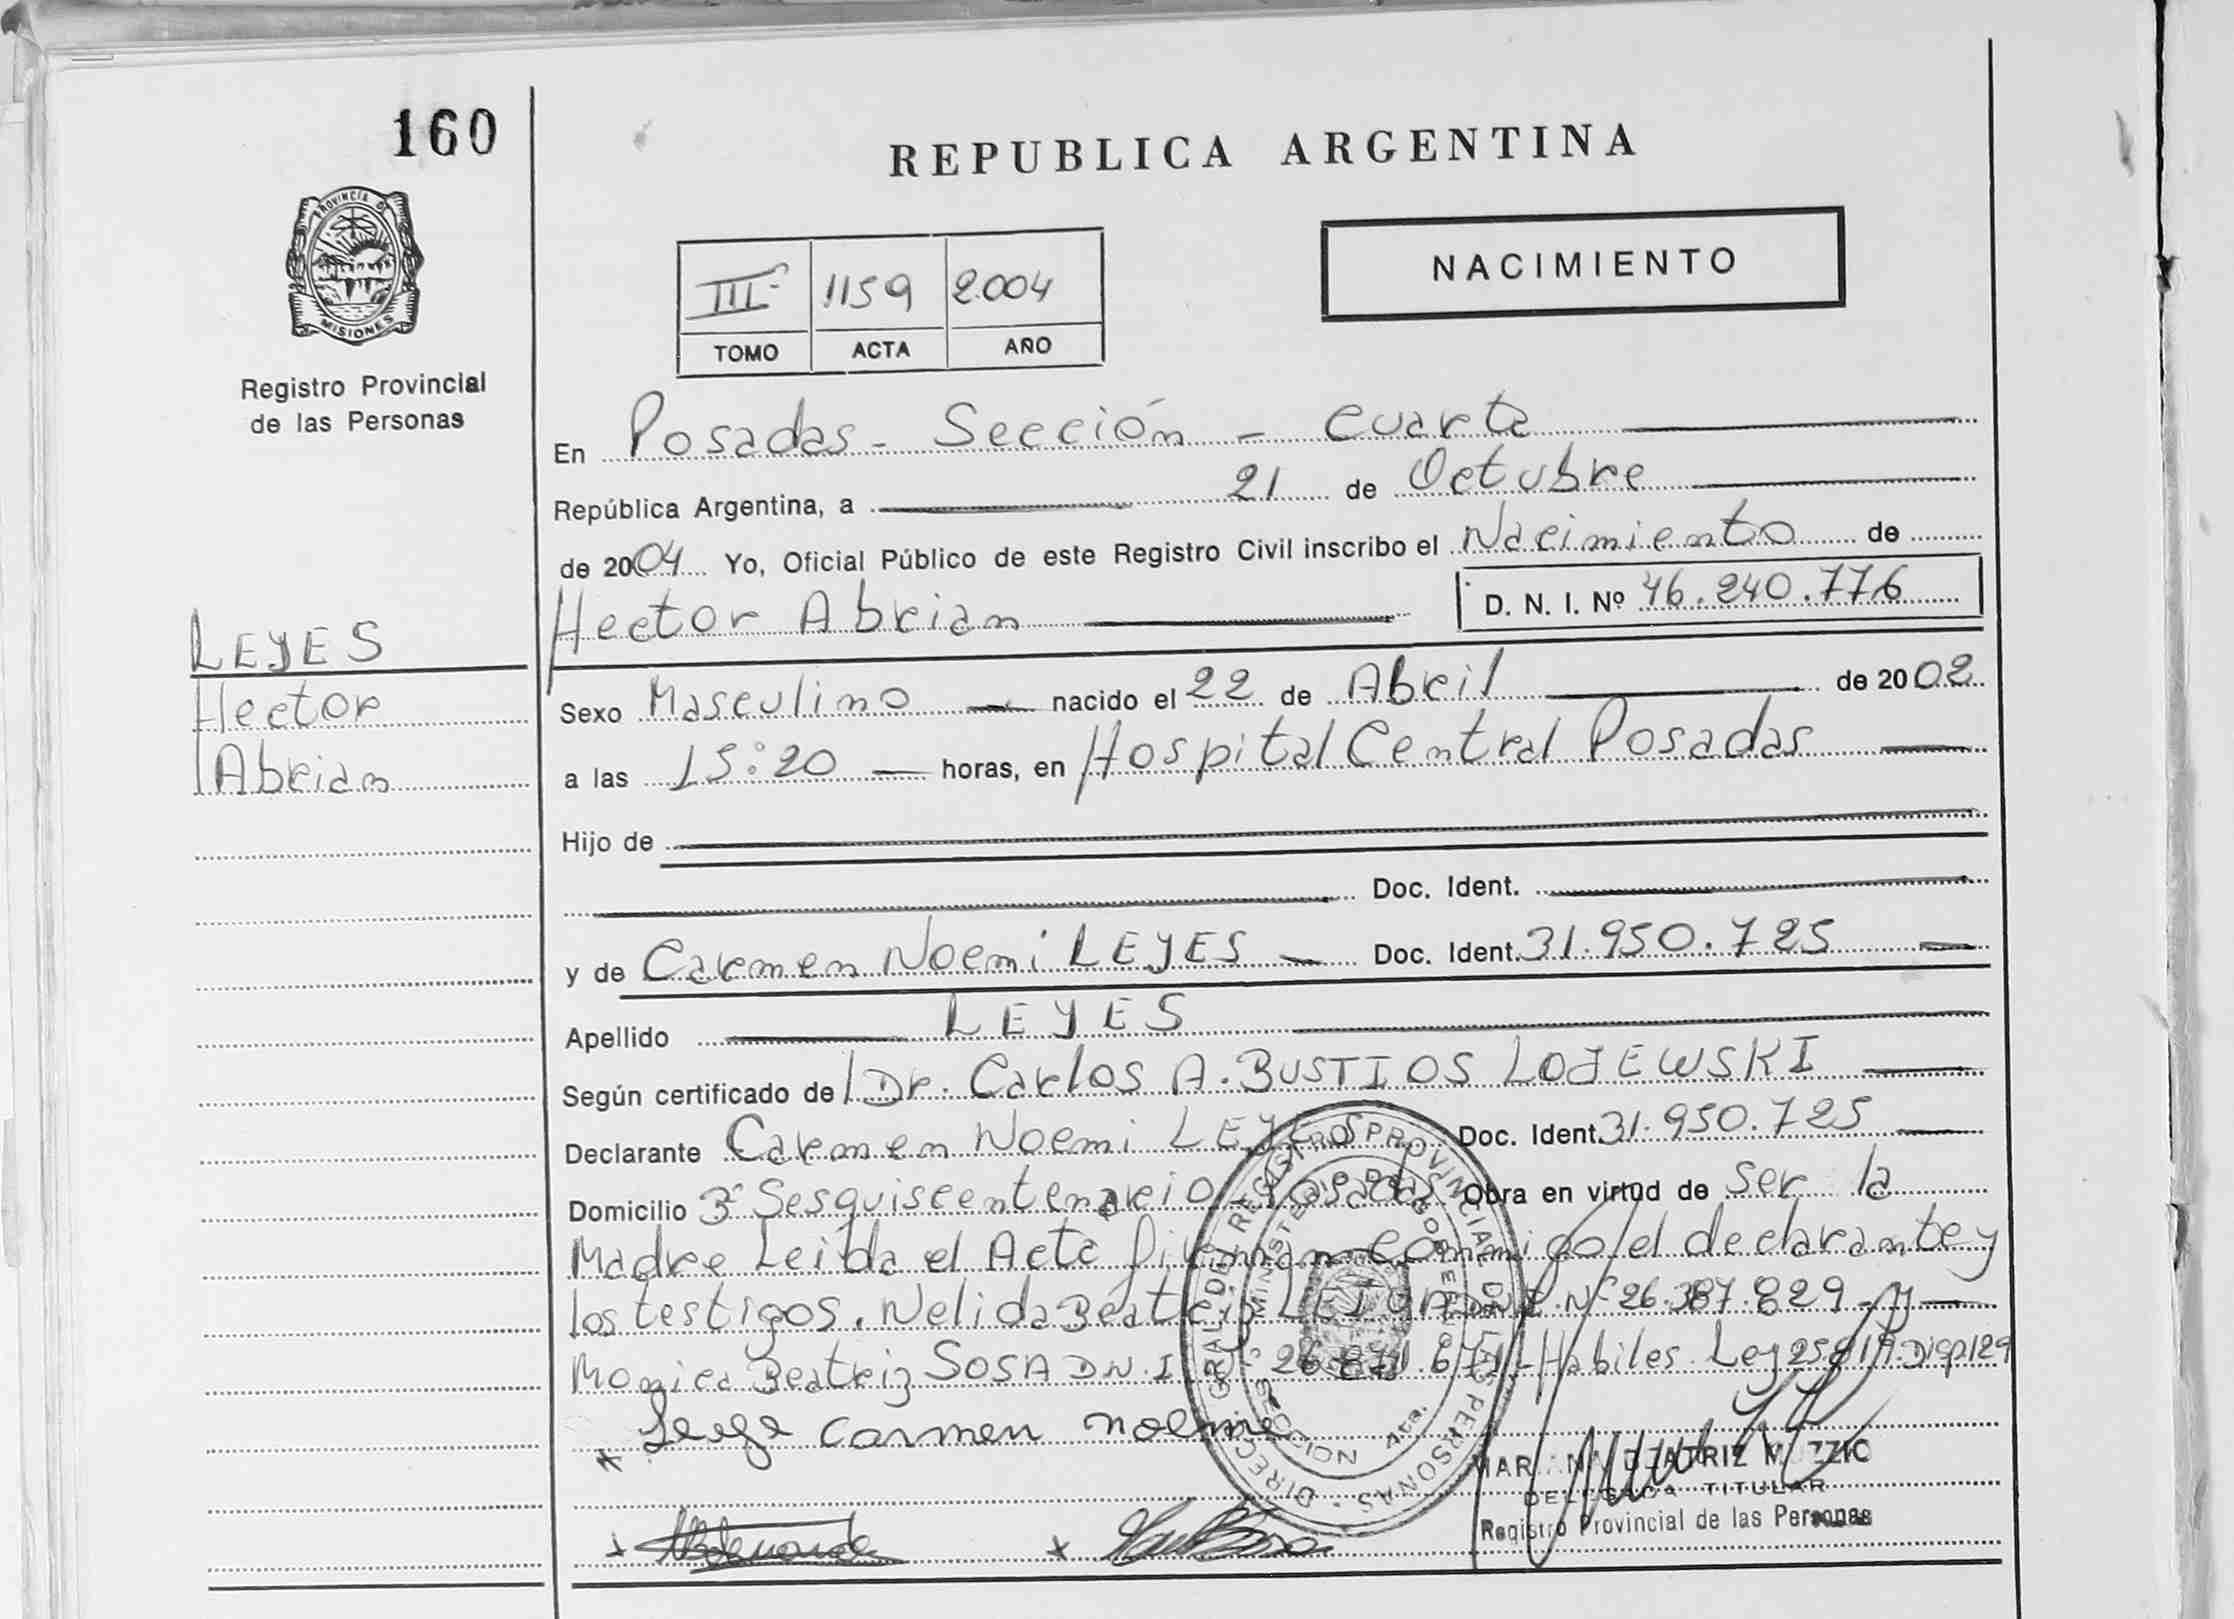 160
REPUBLICA ARGENTINA
PROVINCIA DE
MISIONES
Registro Provincial
de las Personas
NACIMIENTO
III 1159 2.004
TOMO ACTA AÑO
En Posadas - Sección - Cuarta
República Argentina, a 21 de Octubre
de 2004 Yo, Oficial Público de este Registro Civil inscribo el Nacimiento de
Hector Abrian D. N. I. Nº 46.240.776
LEYES
Hector
Abrian
Sexo Masculino nacido el 22 de Abril de 2002
a las 15:20 horas, en Hospital Central Posadas
Hijo de
Doc. Ident.
y de Carmen Noemi LEYES Doc. Ident. 31.950.725
Apellido LEYES
Según certificado de Dr. Carlos A. BUSTIOS LOJEWSKI
Declarante Carmen Noemi LEYES Doc. Ident. 31.950.725
Domicilio Sesquiscentenario Posadas Obra en virtud de ser la
Madre Leida el Acta Firman conmigo el declarante y
los testigos. Nelida Beatriz Nº 26.387.829 y
Monica Beatriz SOSA D.N.I Habiles Ley
Carmen
DELEGADA TITULAR
Registro Provincial de las Personas
DIRECC. GRAL. DEL REGISTRO PROVINCIAL DE LAS PERSONAS
MINISTERIO DE GOBIERNO
4ta.